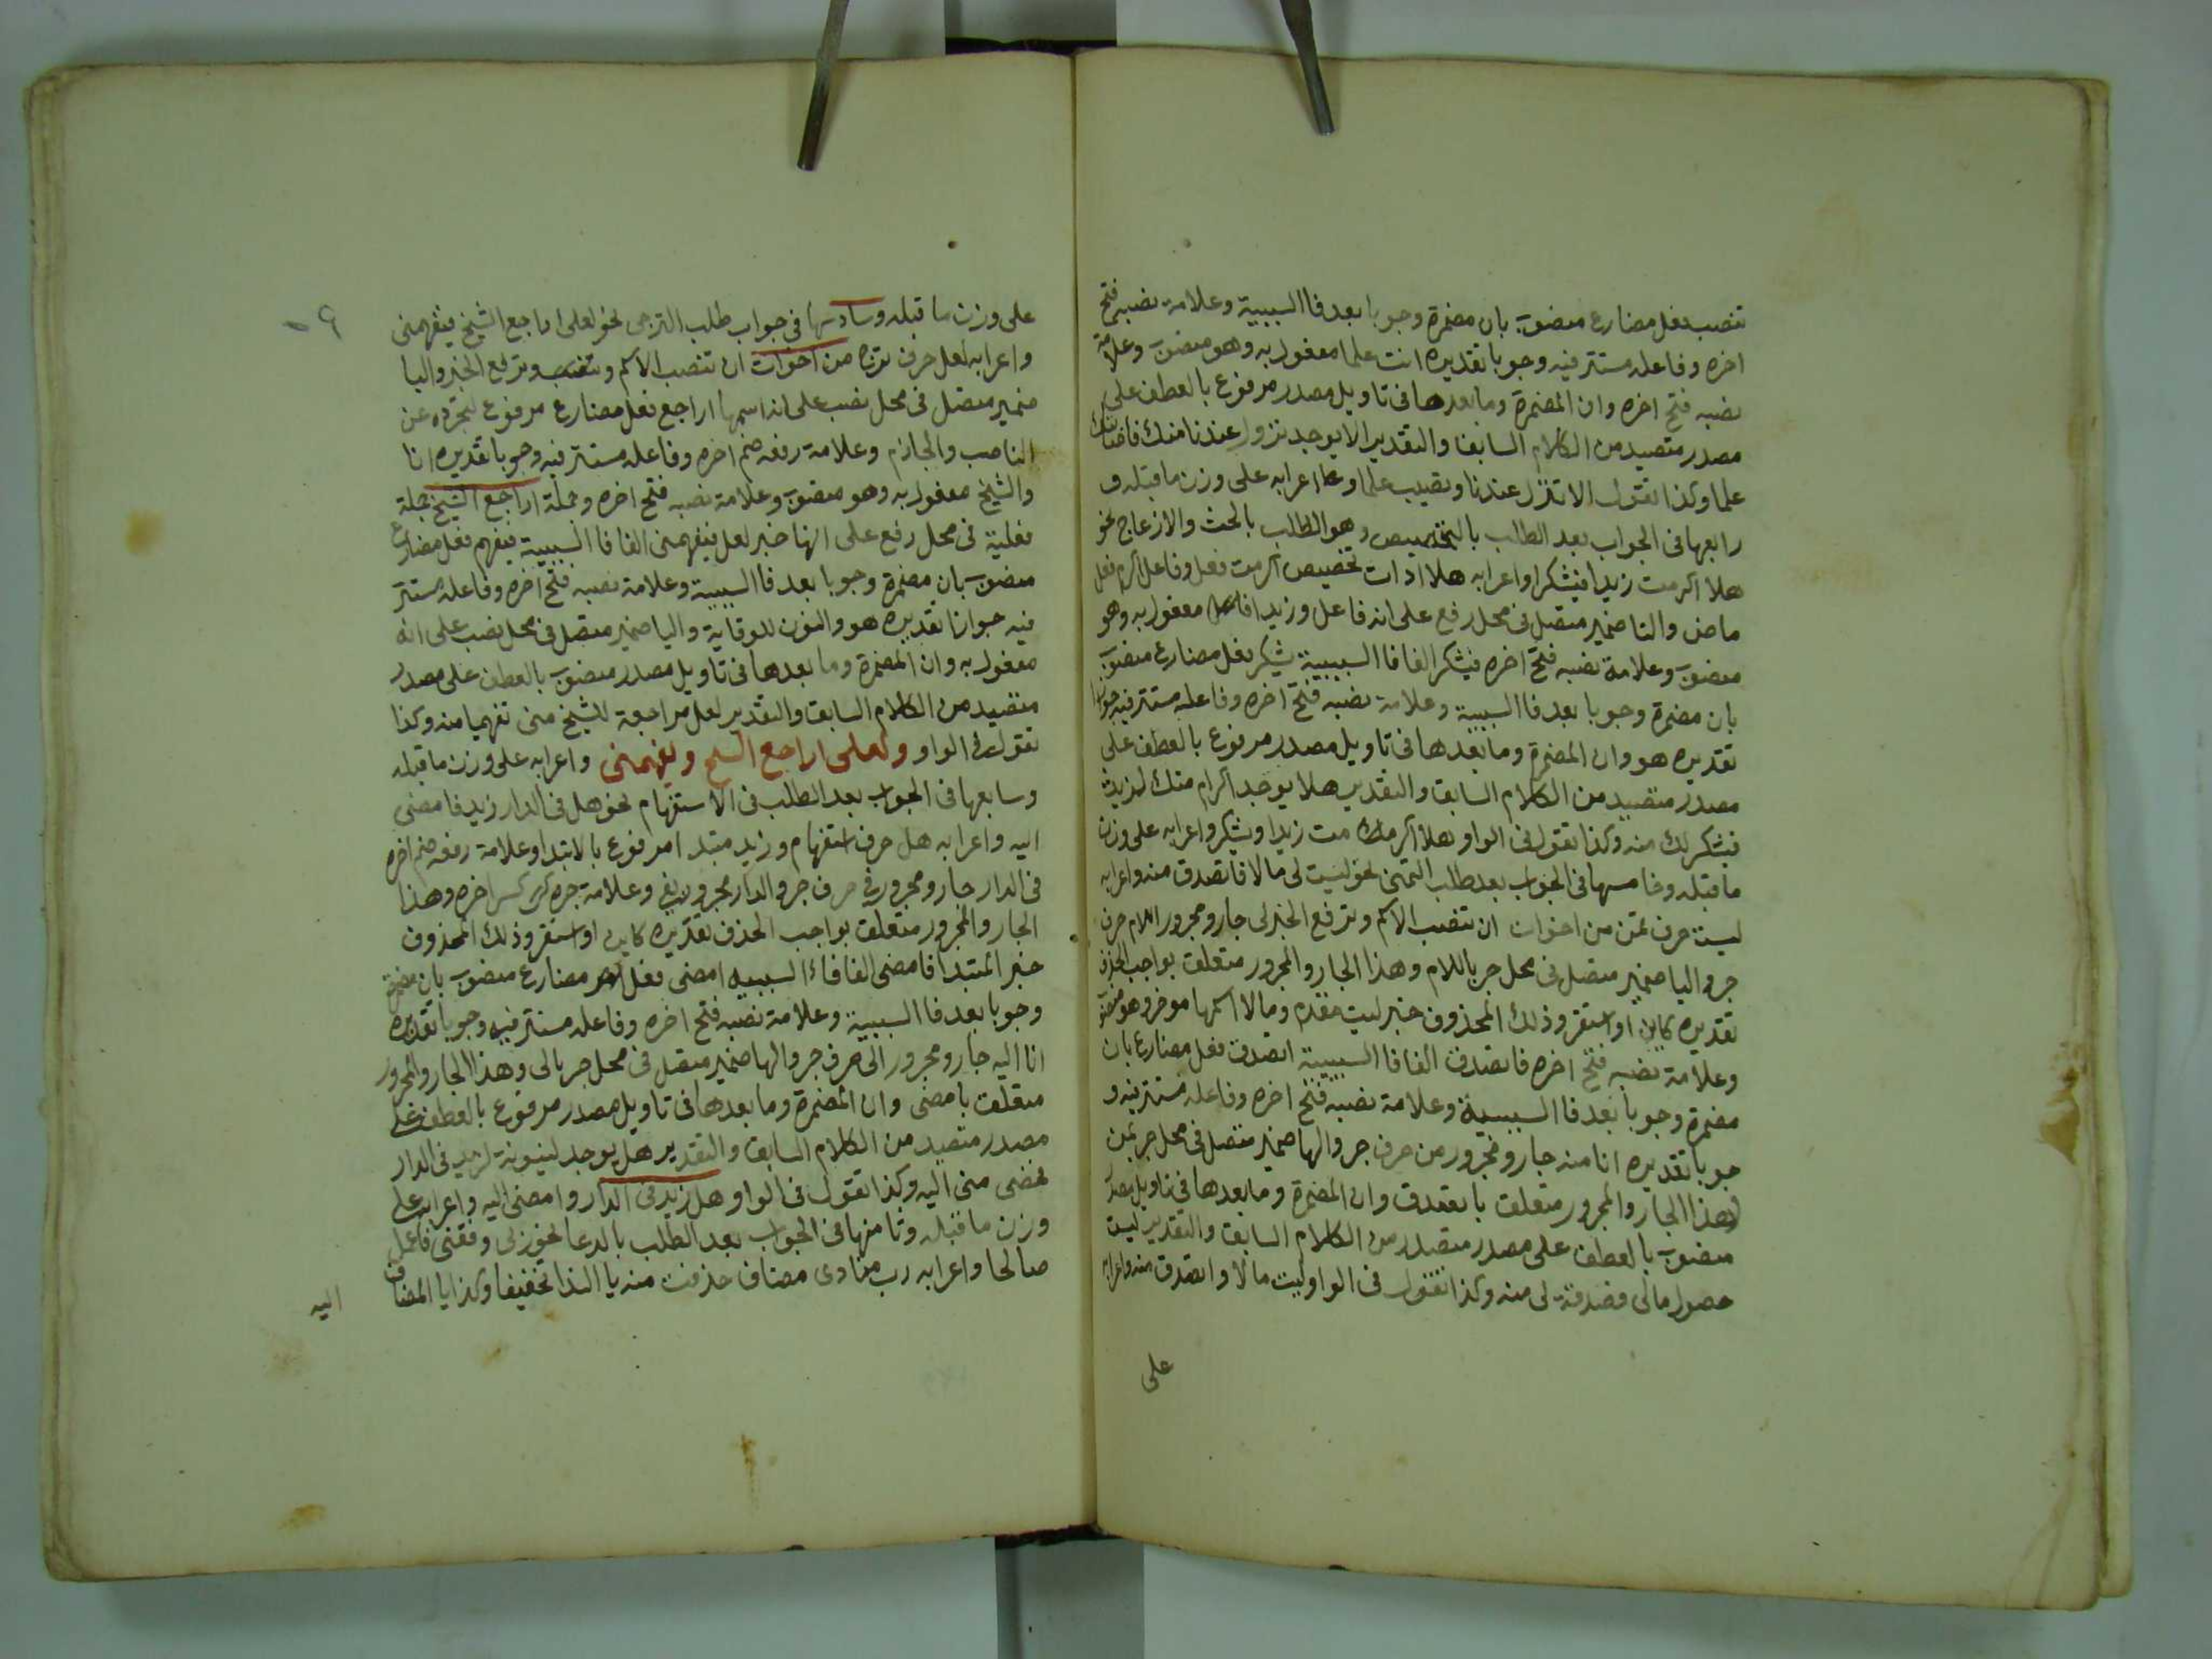 تنصب فعل مضارع منصوب بان مضمرة وجوبا بعد فا السببية وعلامة نصبه فتح
اخره وفاعله مستتر فيه وجوبا تقديره انت علما مفعول به وهو منصوب وعلامة
نصبه فتح اخره وان المضمرة وما بعدها في تاويل مصدر مرفوع بالعطف على
مصدر متصيد من الكلام السابق والتقدير الا يوجد نزول عندنا منك
علما وكذا تقول الا تنزل عندنا وتصيب علما واعرابه على وزن ما قبله و
رابعها في الجواب بعد الطلب بالتخصيص وهو الطلب بالحث والازعاج نحو
هلا اكرمت زيدا فيشكر واعرابه هلا ادات تخصيص اكرمت فعل وفاعل اكرم فعل
ماض والتا ضمير متصل في محل رفع على انه فاعل وزيدا مفعول به وهو
منصوب وعلامة نصبه فتح اخره فيشكر الفا فا السببية يشكر فعل مضارع منصوب
بان مضمرة وجوبا بعد فا السببية وعلامة نصبه فتح اخره وفاعله مستتر فيه جوازا
تقديره هو وان المضمرة وما بعدها في تاويل مصدر مرفوع بالعطف على
مصدر متصيد من الكلام السابق والتقدير هلا يوجد اكرام منك لزيد
فيشكر لك منه وكذا تقول في الواو هلا اكرمت زيدا ويشكر واعرابه على وزن
ما قبله وخامسها في الجواب بعد طلب التمني نحو ليت لي مالا فاتصدق منه واعرابه
ليت حرف تمن من اخوات ان تنصب الاسم وترفع الخبر لي جار ومجرور اللام حرف
جر واليا ضمير متصل في محل جر باللام وهذا الجار والمجرور متعلق بواجب الحذف
تقديره كاين او استقر وذلك المحذوف خبر ليت مقدم ومالا اسمها موخر وهو منصوب
وعلامة نصبه فتح اخره فاتصدق الفا فا السببية اتصدق فعل مضارع بان
مضمرة وجوبا بعد فا السببية وعلامة نصبه فتح اخره وفاعله مستتر فيه و
جوبا تقديره انا منه جار ومجرور من حرف جر والها ضمير متصل في محل جر بمن
وهذا الجار والمجرور متعلق باتصدق وان المضمرة وما بعدها في تاويل مصدر
منصوب بالعطف على مصدر متصيد من الكلام السابق والتقدير ليت
حصول مالي فصدقة لي منه وكذا تقول في الواو ليت مالا واتصدق منه واعرابه
على
على وزن ما قبله وسادسها في جواب طلب الترجي نحو لعلي اراجع الشيخ فيفهمني
واعرابه لعل حرف ترج من اخوات ان تنصب الاسم وترفع الخبر واليا
ضمير متصل في محل نصب على انه اسمها اراجع فعل مضارع مرفوع لتجرده عن
الناصب والجازم وعلامة رفعه ضم اخره وفاعله مستتر فيه وجوبا تقديره انا
والشيخ مفعول به وهو منصوب وعلامة نصبه فتح اخره وجملة اراجع الشيخ جملة
فعلية في محل رفع على انها خبر لعل فيفهمني الفا فا السببية فيفهم فعل مضارع
منصوب بان مضمرة وجوبا بعد فا السببية وعلامة نصبه فتح اخره وفاعله مستتر
فيه جوازا تقديره هو والنون للوقاية واليا ضمير متصل في محل نصب على انه
مفعول به وان المضمرة وما بعدها في تاويل مصدر منصوب بالعطف على مصدر
متصيد من الكلام السابق والتقدير لعل مراجعة للشيخ مني تفهيما منه وكذا
تقول في الواو ولعلي اراجع الشيخ ويفهمني واعرابه على وزن ما قبله
وسابعها في الجواب بعد الطلب في الاستفهام نحو هل في الدار زيد فامضي
اليه واعرابه هل حرف استفهام وزيد مبتدا مرفوع بالابتدا وعلامة رفعه ضم اخره
في الدار جار ومجرور في حرف جر والدار مجرور بفي وعلامة جره كسر اخره وهذا
الجار والمجرور متعلق بواجب الحذف تقديره كاين او استقر وذلك المحذوف
خبر المبتدا فامضي الفا فاء السببيه امضي فعل مضارع منصوب بان مضمرة
وجوبا بعد فا السببية وعلامة نصبه فتح اخره وفاعله مستتر فيه وجوبا تقديره
انا اليه جار ومجرور الى حرف جر والها ضمير متصل في محل جر بالى وهذا الجار والمجرور
متعلق بامضي وان المضمرة وما بعدها في تاويل مصدر مرفوع بالعطف على
مصدر متصيد من الكلام السابق والتقدير هل يوجد لزيد في الدار
فمضي مني اليه وكذا تقول في الواو هل زيد في الدار وامضي اليه واعرابه على
وزن ما قبله وثامنها في الجواب بعد الطلب بالدعا نحو رب وفقني فاعمل
صالحا واعرابه رب منادى مضاف حذفت منه يا الندا تخفيفا وكذا يا المضاف
اليه